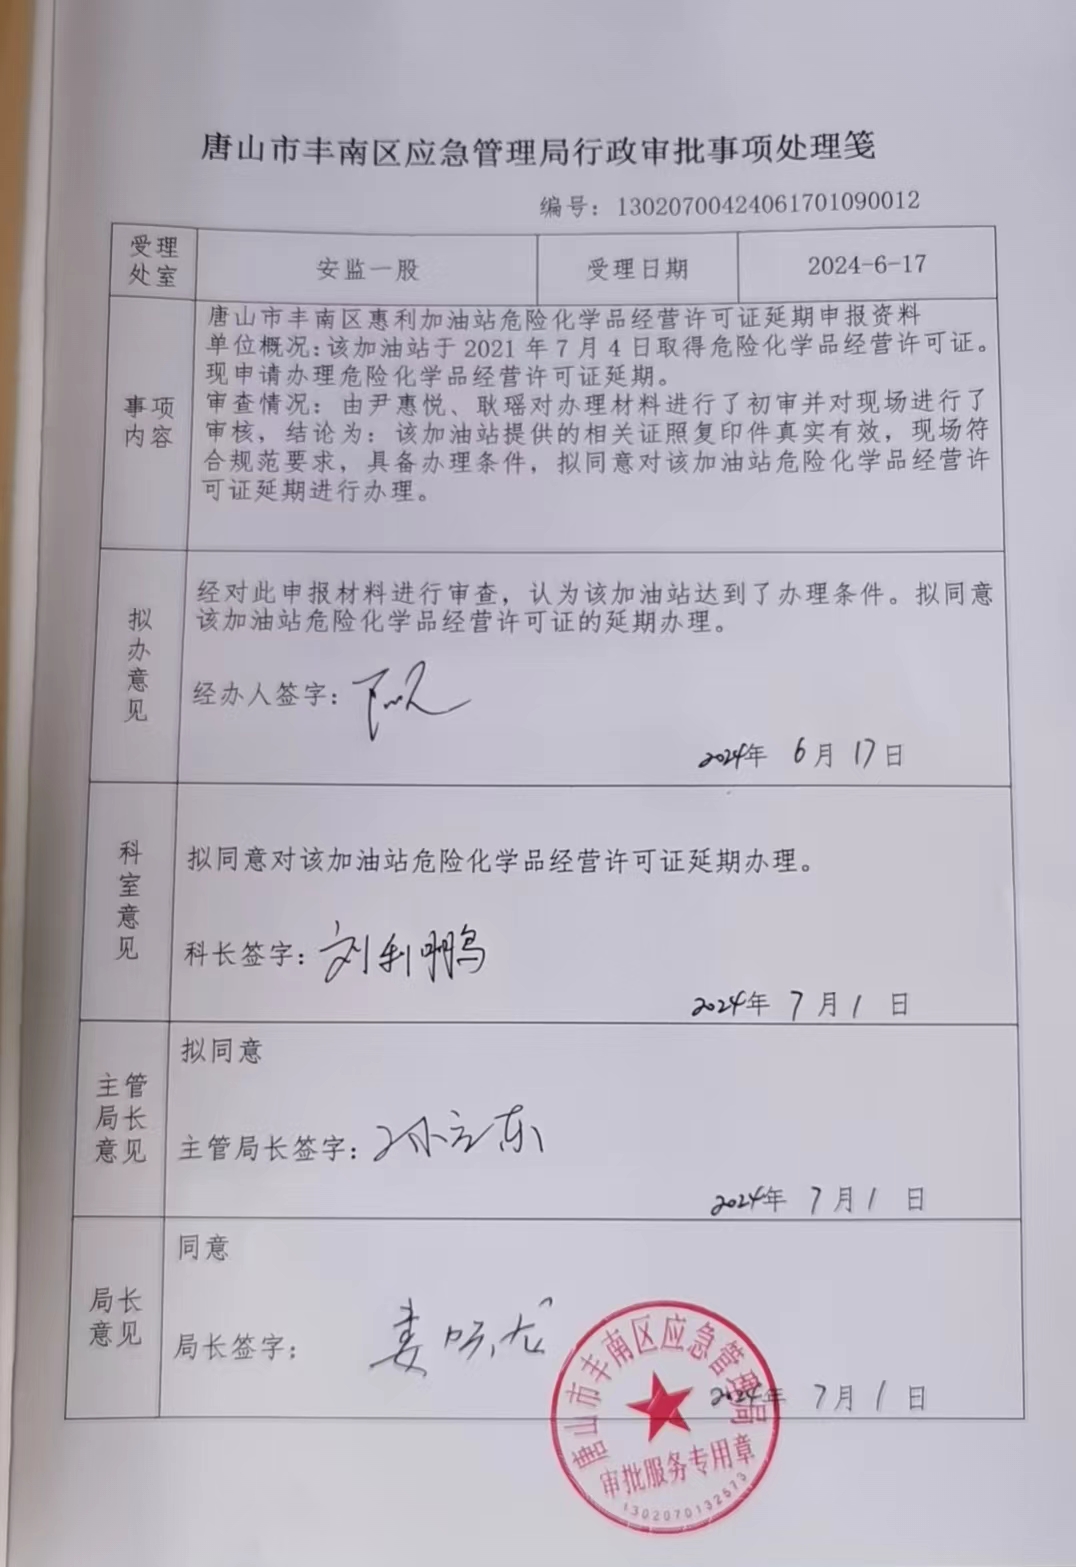 唐山市丰南区应急管理局行政审批事项处理笺
编号：13020700424061701090012
受理
处室
安监一股
受理日期
2024-6-17
事项
内容
唐山市丰南区惠利加油站危险化学品经营许可证延期申报资料
单位概况：该加油站于 2021 年 7 月 4 日取得危险化学品经营许可证。
现申请办理危险化学品经营许可证延期。
审查情况：由尹惠悦、耿瑶对办理材料进行了初审并对现场进行了
审核，结论为：该加油站提供的相关证照复印件真实有效，现场符
合规范要求，具备办理条件，拟同意对该加油站危险化学品经营许
可证延期进行办理。
拟
办
意
见
经对此申报材料进行审查，认为该加油站达到了办理条件。拟同意
该加油站危险化学品经营许可证的延期办理。
经办人签字：
2024年 6月 17日
科
室
意
见
拟同意对该加油站危险化学品经营许可证延期办理。
科长签字：刘利鹏
2024年 7月1日
主管
局长
意见
拟同意
主管局长签字：孙立东
2024年 7月1日
局长
意见
同意
局长签字：
2024年 7月1日
唐山市丰南区应急管理局
审批服务专用章
1302070132573